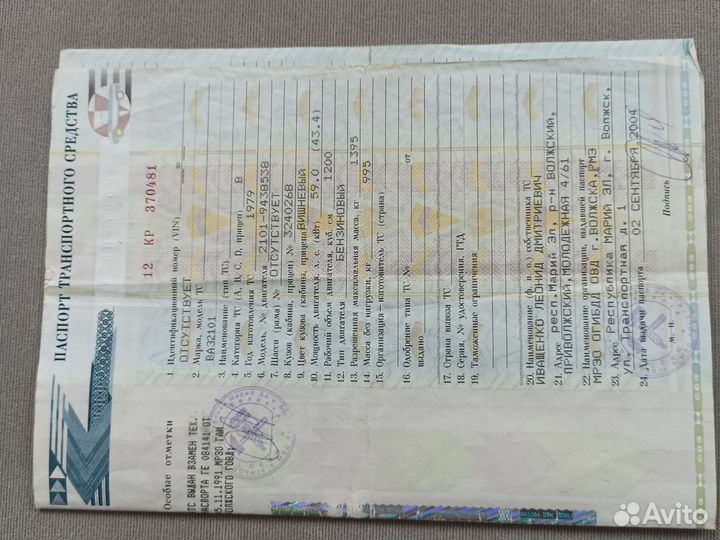 ПАСПОРТ ТРАНСПОРТНОГО СРЕДСТВА
12 КР 370481
1. Идентификационный номер (VIN)
ОТСУТСТВУЕТ
2. Марка, модель ТС
ВАЗ2101
3. Наименование (тип ТС)
4. Категория ТС (А, В, С, D, прицеп) В
5. Год изготовления ТС 1979
6. Модель, № двигателя 2101-9438538
7. Шасси (рама) № ОТСУТСТВУЕТ
8. Кузов (кабина, прицеп) № 3240268
9. Цвет кузова (кабины, прицепа) ВИШНЕВЫЙ
10. Мощность двигателя, л. с. (кВт) 59.0 (43.4)
11. Рабочий объем двигателя, куб. см 1200
12. Тип двигателя БЕНЗИНОВЫЙ
13. Разрешенная максимальная масса, кг 1395
14. Масса без нагрузки, кг 995
15. Организация – изготовитель ТС (страна)
16. Одобрение типа ТС № от
выдано
17. Страна вывоза ТС
18. Серия, № удостоверения, ГТД
19. Таможенные ограничения
20. Наименование (ф. и. о.) собственника ТС
ИВАЩЕНКО ЛЕОНИД ДМИТРИЕВИЧ
21. Адрес респ.Марий Эл, р-н ВОЛЖСКИЙ,
ПРИВОЛЖСКИЙ,МОЛОДЕЖНАЯ 4/61
22. Наименование организации, выдавшей паспорт
МРЭО ОГИБДД ОВД г.ВОЛЖСКА,РМЭ
23. Адрес Республика МАРИЙ ЭЛ, г. Волжск,
ул. Транспортная д. 1
24. Дата выдачи паспорта 02 СЕНТЯБРЯ 2004
М. П. Подпись
Особые отметки
ТС ВЫДАН ВЗАМЕН ТЕХ.
АСПОРТА ГЕ 084141 ОТ
5.11.1991 МРЭО ГАИ
ОЛЖСКОГО ГОВД.
Avito